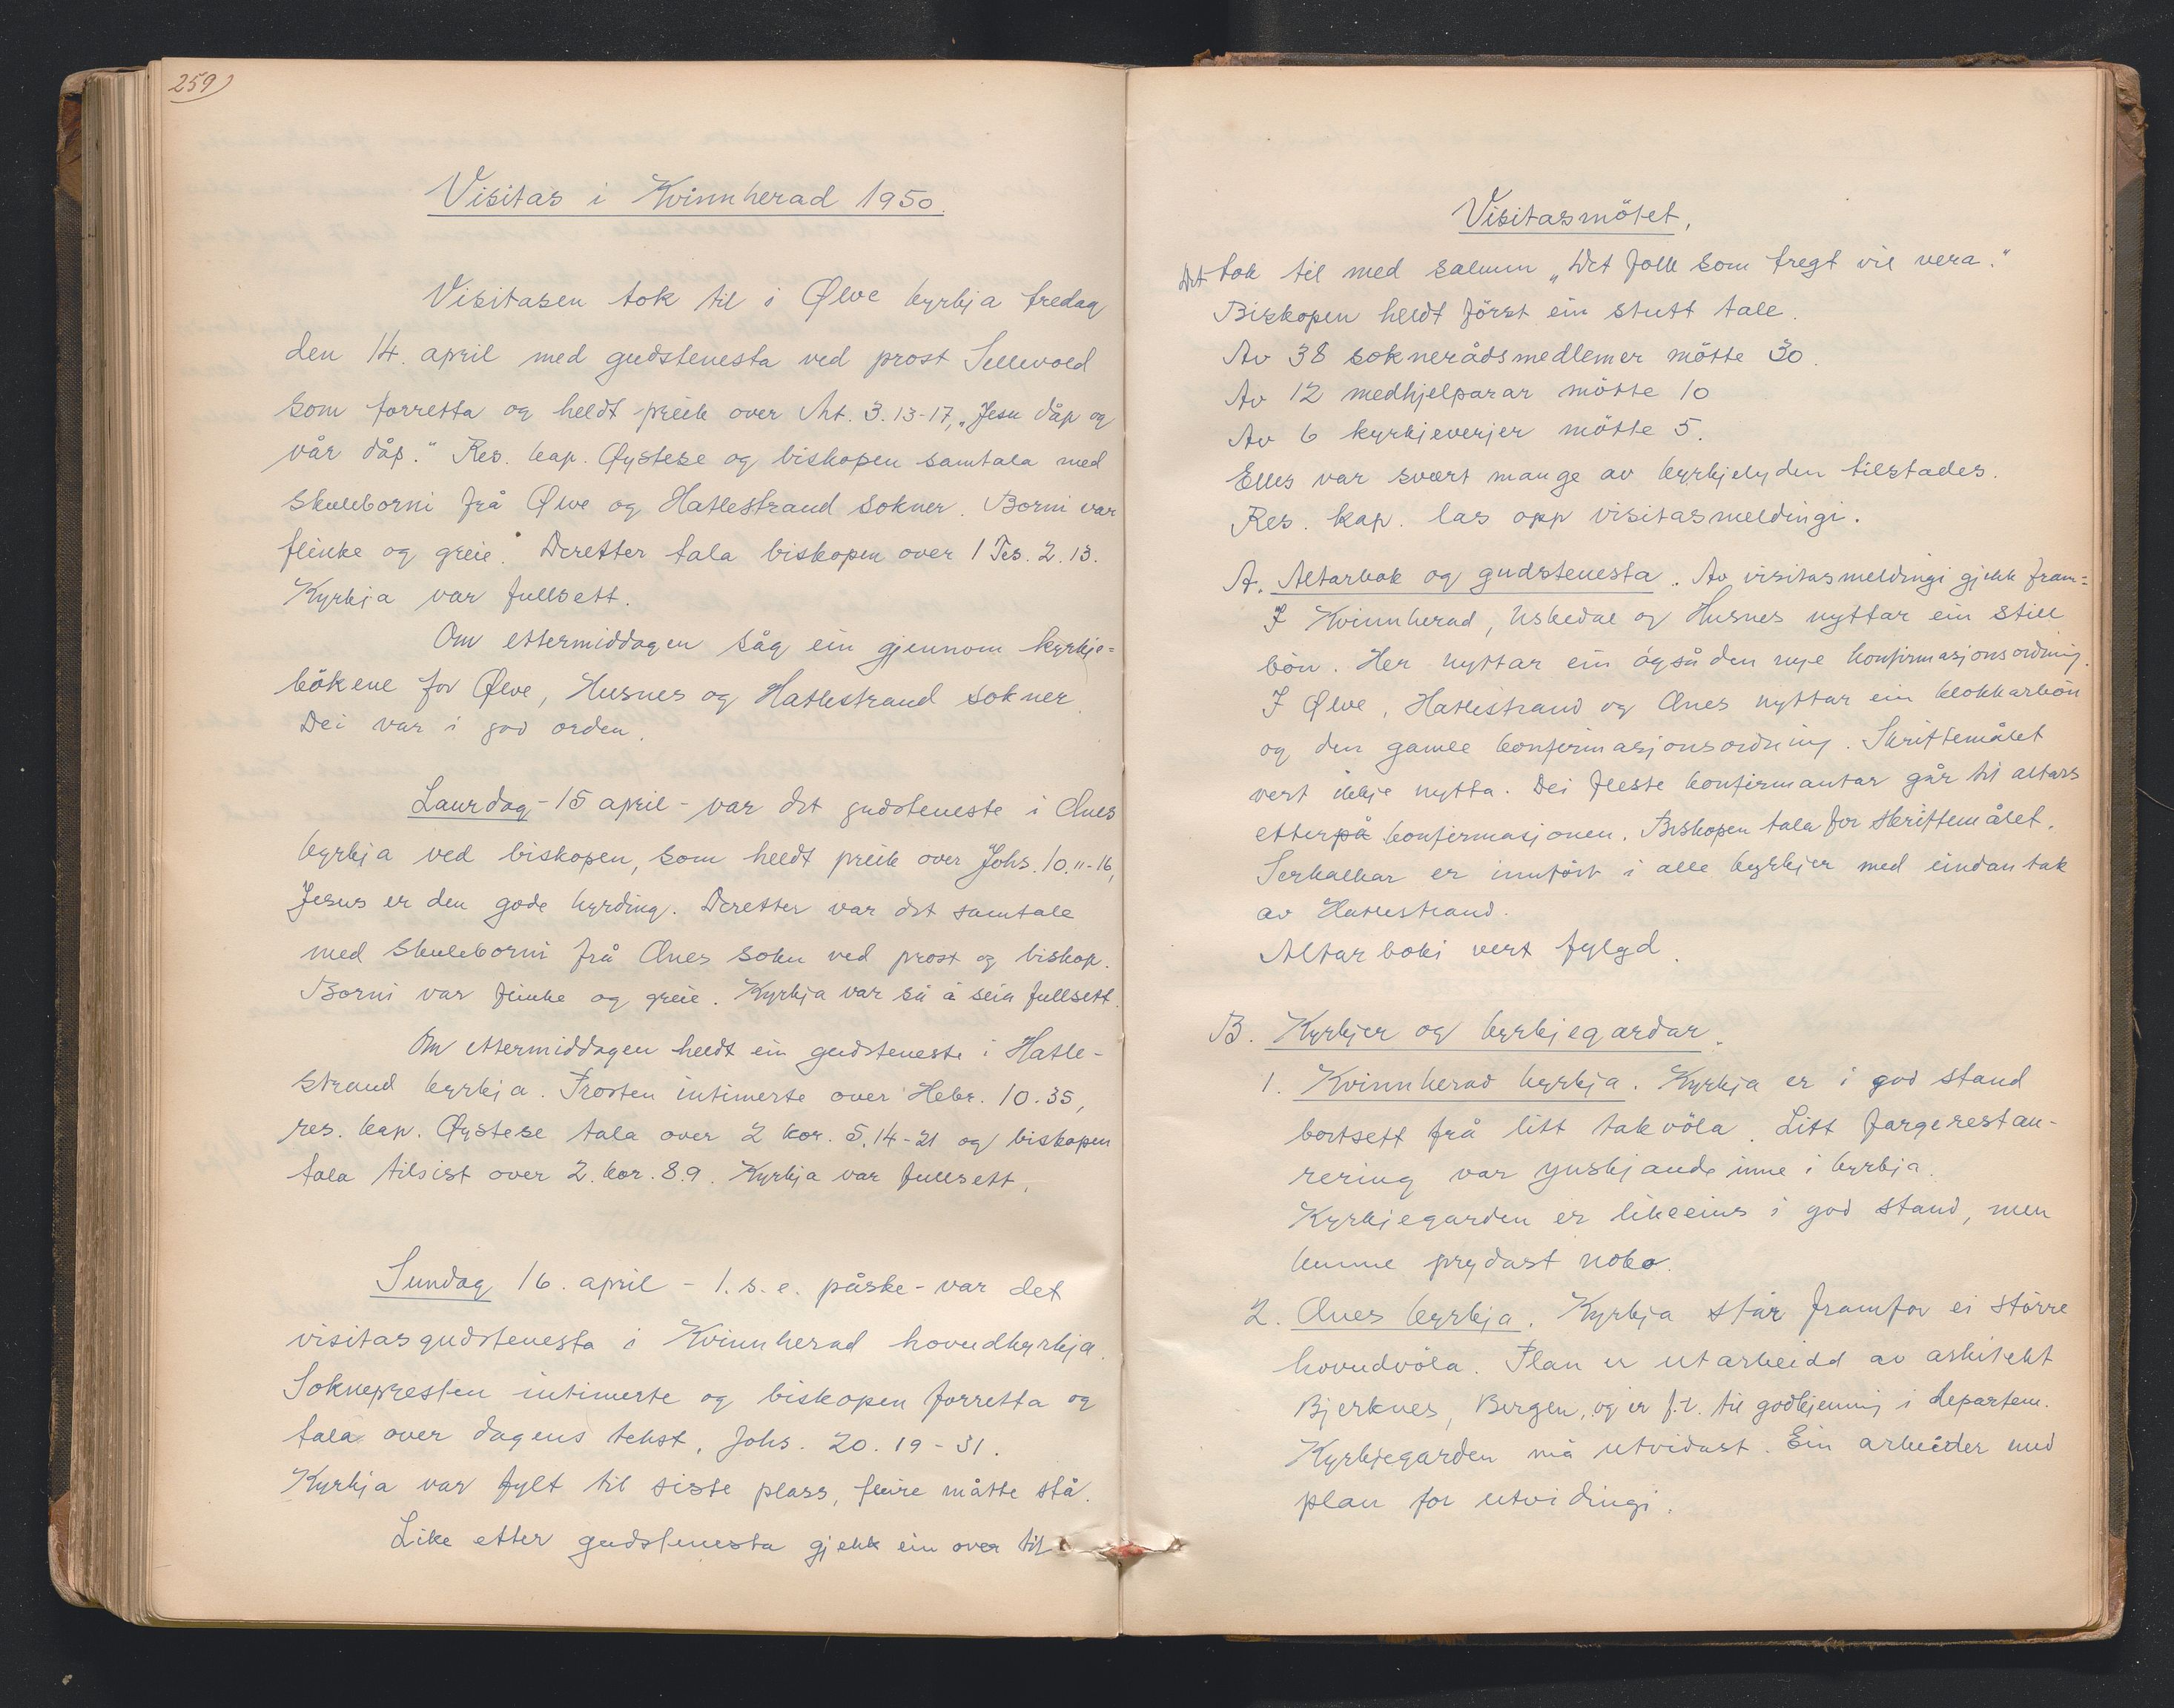 259)
Visitas i Kvinnherad 1950.
Visitasen tok til i Ølve kyrkja fredag
den 14. april med gudstenesta ved prost Sellevold
som forretta og heldt preik over Mt. 3.13-17, „Jesu dåp og
vår dåp." Res. kap. Øystese og biskopen samtala med
skuleborni frå Ølve og Hatlestrand sokner. Borni var
flinke og greie. Deretter tala biskopen over 1 Tes. 2.13.
Kyrkja var fullsett.
Om ettermiddagen såg ein gjennom kyrkje=
bökene for Ølve, Husnes og Hatlestrand sokner.
Dei var i god orden.
Laurdag - 15 april - var det gudsteneste i Ånes
kyrkja ved biskopen, som heldt preik over Johs. 10.11-16,
Jesus er den gode hyrding. Deretter var det samtale
med skuleborni frå Ånes sokn ved prost og biskop.
Borni var flinke og greie. Kyrkja var så å seia fullsett.
Om ettermiddagen heldt ein gudsteneste i Hatle-
strand kyrkja. Prosten intimerte over Hebr. 10.35,
res. kap. Øystese tala over 2 Kor. 5.14-21 og biskopen
tala tilsist over 2. Kor. 8.9. Kyrkja var fullsett.
Sundag 16. april - 1. s. e. påske - var det
visitasgudstenesta i Kvinnherad hovudkyrkja.
Soknepresten intimerte og biskopen forretta og
tala over dagens tekst, Johs. 20.19-31.
Kyrkja var fylt til siste plass, fleire måtte stå.
Like etter gudstenesta gjekk ein over til
Visitasmötet.
Det tok til med salmen „Det folk som fregt vil vera."
Biskopen heldt först ein stutt tale.
Av 38 soknerådsmedlemer mötte 30.
Av 12 medhjelparar mötte 10
Av 6 kyrkjeverjer mötte 5.
Elles var svært mange av kyrkjelyden tilstades.
Res. kap. las opp visitasmeldingi.
A. Altarbok og gudstenesta. Av visitasmeldingi gjekk fram:
I Kvinnherad, Uskedal og Husnes nyttar ein still
bön. Her nyttar ein også den nye konfirmasjonsordning.
I Ølve, Hatlestrand og Ånes nyttar ein klokkarbön
og den gamle konfirmasjonsordning. Skriftemålet
vert ikkje nytta. Dei fleste konfirmantar går til altars
etterpå konfirmasjonen. Biskopen tala for skriftemålet.
Serkalkar er innfört i alle kyrkjer med eindantak
av Hatlestrand.
Altarboki vert fylgd.
B. Kyrkjer og kyrkjegardar.
1. Kvinnherad kyrkja. Kyrkja er i god stand
bortsett frå litt takvöla. Litt fargerestau-
rering var ynskjande inne i kyrkja.
Kyrkjegarden er likeeins i god stand, men
kunne prydast noko.
2. Ånes kyrkja. Kyrkja står framfor ei större
hovudvöla. Plan er utarbeidd av arkitekt
Bjerknes, Bergen, og er f.t. til godkjenning i departem.
Kyrkjegarden må utvidast. Ein arbeider med
plan for utvidingi.